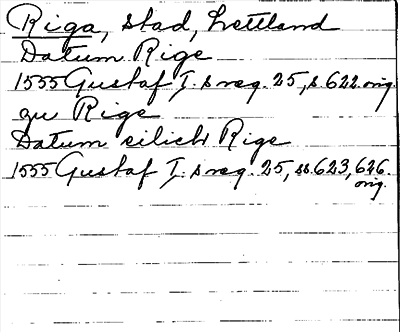 Riga, stad, Lettland
Datum Rige
1555 Gustaf I. s reg. 25, s 622 orig.
zu Rige
Datum eilich Rige
1555 Gustaf I. s reg. 25, ss. 623, 626.
orig.